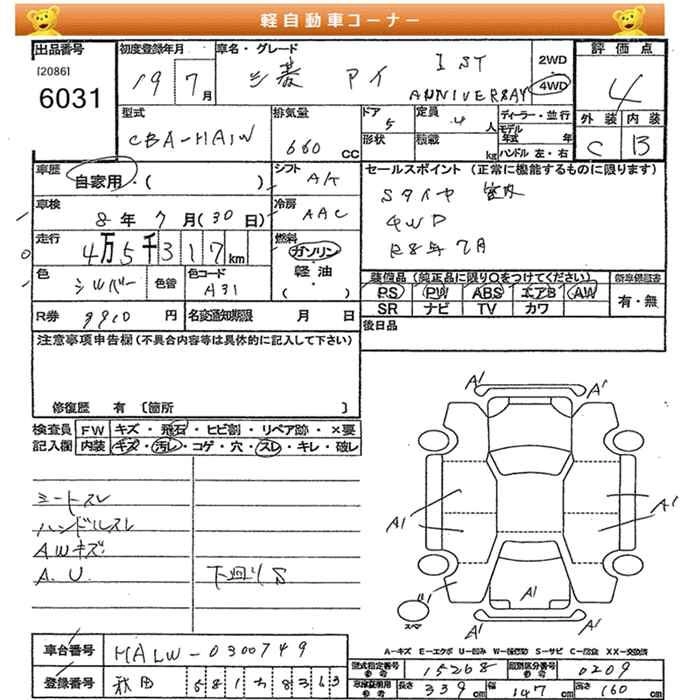 軽自動車コーナー
出品番号
[2086]
6031
初度登録年月
19 7月
車名・グレード
三菱 アイ 1ST ANNIVERSAY
2WD
4WD
評価点
4
外装 内装
C B
型式
CBA-HA1W
排気量
660 CC
ドア
5
定員
4人
形状
積載
kg
ディーラー・並行
モデル年式 年
ハンドル 左・右
車歴
自家用・( )
シフト
A/T
車検
8年7月(30日)
冷房
AAC
走行
4万5千317km
燃料
ガソリン
軽油
・( )
色
シルバー
色替
色コード
A31
R券
9910円
名変通知期限 月 日
セールスポイント (正常に機能するものに限ります)
Sタイヤ 室内
4WD
R8年7月
装備品 (純正品に限り○をつけてください)
新車保証書
PS PW ABS エアB AW
SR ナビ TV カワ
有・無
後日品
注意事項申告欄(不具合内容等は具体的に記入して下さい)
修復歴 有 [箇所 ]
検査員記入欄
FW キズ・飛石・ヒビ割・リペア跡・×要
内装 キズ・汚レ・コゲ・穴・スレ・キレ・破レ
シートスレ
ハンドルスレ
AWキズ
A.U. 下廻りS
A1 A1
A1 A1
A1
A1 A1
スペア
A-キズ E-エクボ U-凹み W-補修跡 S-サビ C-腐食 XX-交換済
車台番号
HA1W-0300749
登録番号
秋田 581 ひ 8363
型式指定番号 参考
15268
類別区分番号 参考
0209
車庫証明用 参考
長さ 339cm
幅 147cm
高さ 160cm